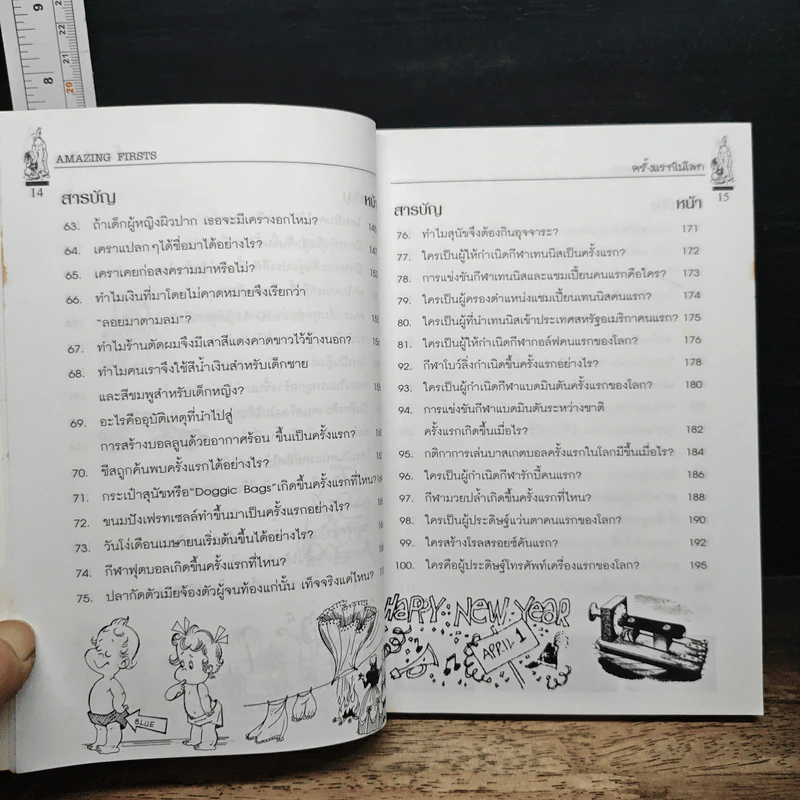 AMAZING FIRSTS
14
สารบัญ หน้า
63. ถ้าเด็กผู้หญิงผิวปาก เธอจะมีเครางอกไหม?
64. เคราแปลกๆได้ชื่อมาได้อย่างไร?
65. เคราเคยก่อสงครามมาหรือไม่?
66. ทำไมเงินที่มาโดยไม่คาดหมายจึงเรียกว่า
“ลอยมาตามลม”?
67. ทำไมร้านตัดผมจึงมีเสาสีแดงคาดขาวไว้ข้างนอก?
68. ทำไมคนเราจึงใช้สีน้ำเงินสำหรับเด็กชาย
และสีชมพูสำหรับเด็กหญิง?
69. อะไรคืออุบัติเหตุที่นำไปสู่
การสร้างบอลลูนด้วยอากาศร้อน ขึ้นเป็นครั้งแรก?
70. ชีสถูกค้นพบครั้งแรกได้อย่างไร?
71. กระเป๋าสุนัขหรือ“Doggic Bags”เกิดขึ้นครั้งแรกที่ไหน?
72. ขนมปังเฟรทเซลล์ทำขึ้นมาเป็นครั้งแรกอย่างไร?
73. วันโง่เดือนเมษายนเริ่มต้นขึ้นได้อย่างไร?
74. กีฬาฟุตบอลเกิดขึ้นครั้งแรกที่ไหน?
75. ปลากัดตัวเมียจ้องตัวผู้จนท้องแก่นั้น เท็จจริงแค่ไหน?
BLUE
ครั้งแรกในโลก
15
สารบัญ หน้า
76. ทำไมสุนัขจึงต้องกินอุจจาระ? 171
77. ใครเป็นผู้ให้กำเนิดกีฬาเทนนิสเป็นครั้งแรก? 172
78. การแข่งขันกีฬาเทนนิสและแชมเปี้ยนคนแรกคือใคร? 173
79. ใครเป็นผู้ครองตำแหน่งแชมเปี้ยนเทนนิสคนแรก? 174
80. ใครเป็นผู้ที่นำเทนนิสเข้าประเทศสหรัฐอเมริกาคนแรก? 175
81. ใครเป็นผู้ให้กำเนิดกีฬากอล์ฟคนแรกของโลก? 176
92. กีฬาโบว์ลิ่งกำเนิดขึ้นครั้งแรกอย่างไร? 178
93. ใครเป็นผู้กำเนิดกีฬาแบดมินตันครั้งแรกของโลก? 180
94. การแข่งขันกีฬาแบดมินตันระหว่างชาติ
ครั้งแรกเกิดขึ้นเมื่อไร? 182
95. กติกาการเล่นบาสเกตบอลครั้งแรกในโลกมีขึ้นเมื่อไร? 184
96. ใครเป็นผู้กำเนิดกีฬารักบี้คนแรก? 186
97. กีฬามวยปล้ำเกิดขึ้นครั้งแรกที่ไหน? 188
98. ใครเป็นผู้ประดิษฐ์แว่นตาคนแรกของโลก? 190
99. ใครสร้างโรลสรอยซ์คันแรก? 192
100. ใครคือผู้ประดิษฐ์โทรศัพท์เครื่องแรกของโลก? 195
HAPPY NEW YEAR
APRIL 1